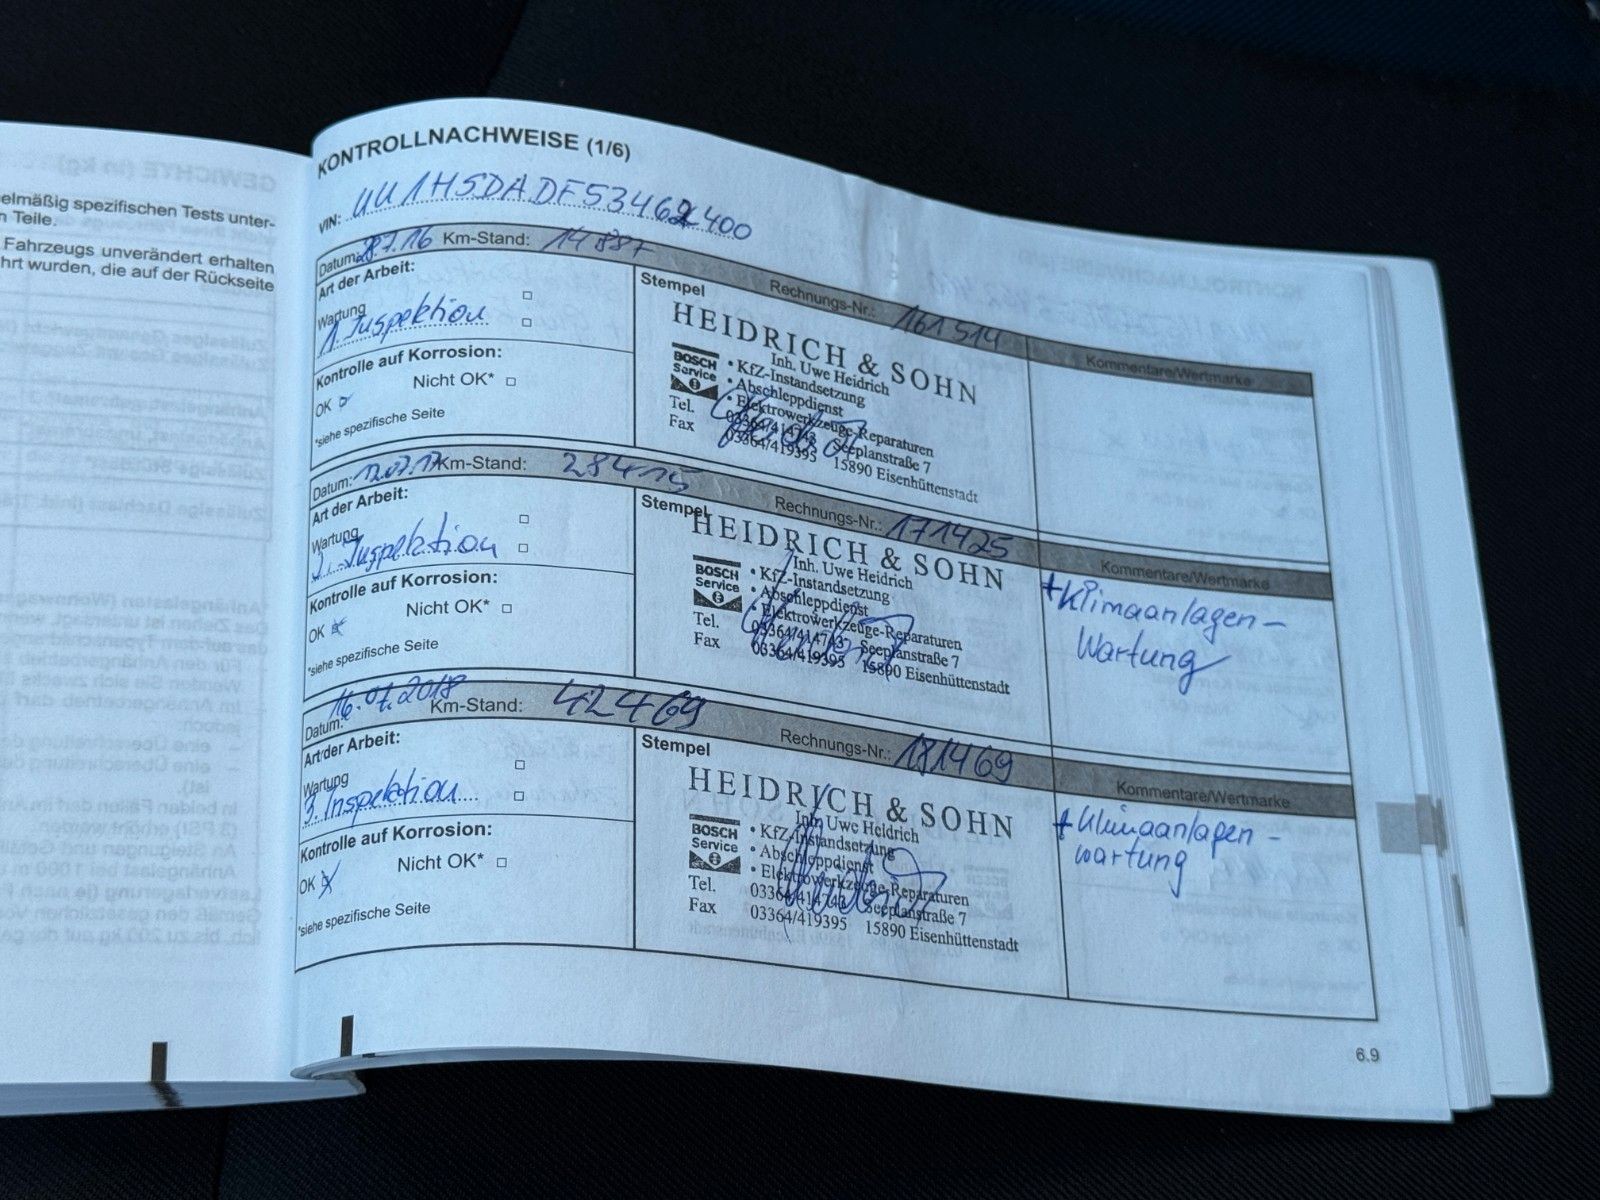 elmäßig spezifischen Tests unter-
n Teile.
Fahrzeugs unverändert erhalten
hrt wurden, die auf der Rückseite
KONTROLLNACHWEISE (1/6)
VIN:
Datum: 28.7.16 Km-Stand: 14887
Art der Arbeit:
Wartung
1. Inspektion
Kontrolle auf Korrosion:
Nicht OK*
OK
*siehe spezifische Seite
Stempel Rechnungs-Nr.: 161514
HEIDRICH & SOHN
Inh. Uwe Heidrich
BOSCH Service
• KfZ-Instandsetzung
• Abschleppdienst
• Elektrowerkzeuge-Reparaturen
Tel. 03364/414743 Seeplanstraße 7
Fax 03364/419395 15890 Eisenhüttenstadt
Kommentare/Wertmarke
Datum: 12.07.17 Km-Stand: 28415
Art der Arbeit:
Wartung
2. Inspektion
Kontrolle auf Korrosion:
Nicht OK*
OK
*siehe spezifische Seite
Stempel Rechnungs-Nr.: 171425
HEIDRICH & SOHN
Inh. Uwe Heidrich
BOSCH Service
• KfZ-Instandsetzung
• Abschleppdienst
• Elektrowerkzeuge-Reparaturen
Tel. 03364/414743 Seeplanstraße 7
Fax 03364/419395 15890 Eisenhüttenstadt
Kommentare/Wertmarke
+ Klimaanlagen-
Wartung
Datum: 16.07.2018 Km-Stand: 42469
Art der Arbeit:
Wartung
3. Inspektion
Kontrolle auf Korrosion:
Nicht OK*
OK
*siehe spezifische Seite
Stempel Rechnungs-Nr.: 181469
HEIDRICH & SOHN
Inh. Uwe Heidrich
BOSCH Service
• KfZ-Instandsetzung
• Abschleppdienst
• Elektrowerkzeuge-Reparaturen
Tel. 03364/414743 Seeplanstraße 7
Fax 03364/419395 15890 Eisenhüttenstadt
Kommentare/Wertmarke
+ Klimaanlagen-
wartung
6.9